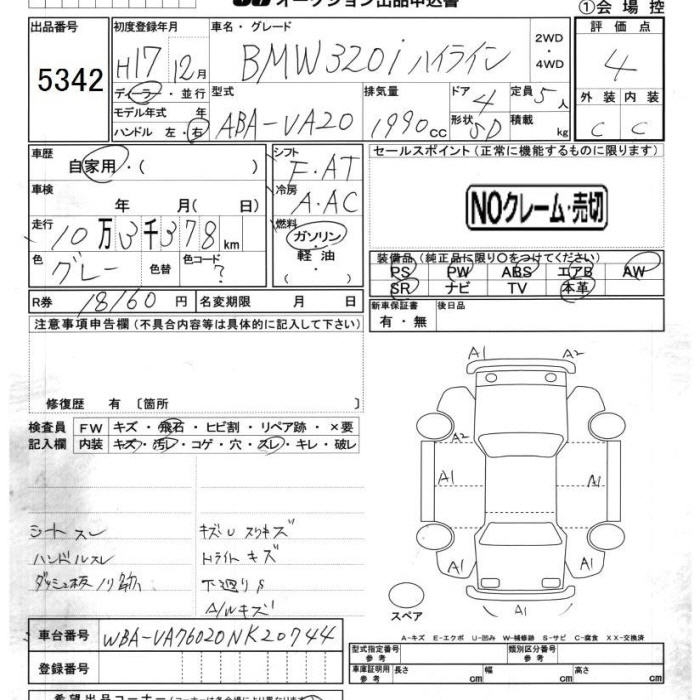 オークション出品申込書
①会場控
出品番号
5342
初度登録年月
H17 12月
ディーラー・並行
モデル年式 年
ハンドル 左・右
車名・グレード
BMW320i ハイライン
2WD
・
4WD
型式
ABA-VA20
排気量
1990cc
ドア 4
形状 5D
定員 5人
積載 kg
評価点
4
外装 内装
C C
車歴
自家用・( )
車検
年 月( 日)
走行
10万3千378km
色
グレー
色替
色コード
?
シフト
F・AT
冷房
A・AC
燃料
ガソリン
・
軽油
・
( )
R券 18160円 名変期限 月 日
セールスポイント(正常に機能するものに限ります)
NOクレーム・売切
装備品(純正品に限り○をつけてください)
PS PW ABS エアB AW
SR ナビ TV 本革
新車保証書
有・無
後日品
注意事項申告欄(不具合内容等は具体的に記入して下さい)
修復歴 有 〔箇所 〕
検査員
記入欄
FW キズ・飛石・ヒビ割・リペア跡・×要
内装 キズ・汚レ・コゲ・穴・スレ・キレ・破レ
シートスレ
ハンドルスレ
キズU スリキズ
Hライト キズ
下廻りS
A/Wキズ
A1 A2
A2
A1 A1
A1
A1 A1
A1
スペア
A-キズ E-エクボ U-凹み W-補修跡 S-サビ C-腐食 XX-交換済
車台番号 WBA-VA76020NK20744
登録番号
型式指定番号
参考
類別区分番号
参考
車庫証明用
参考
長さ cm 幅 cm 高さ cm